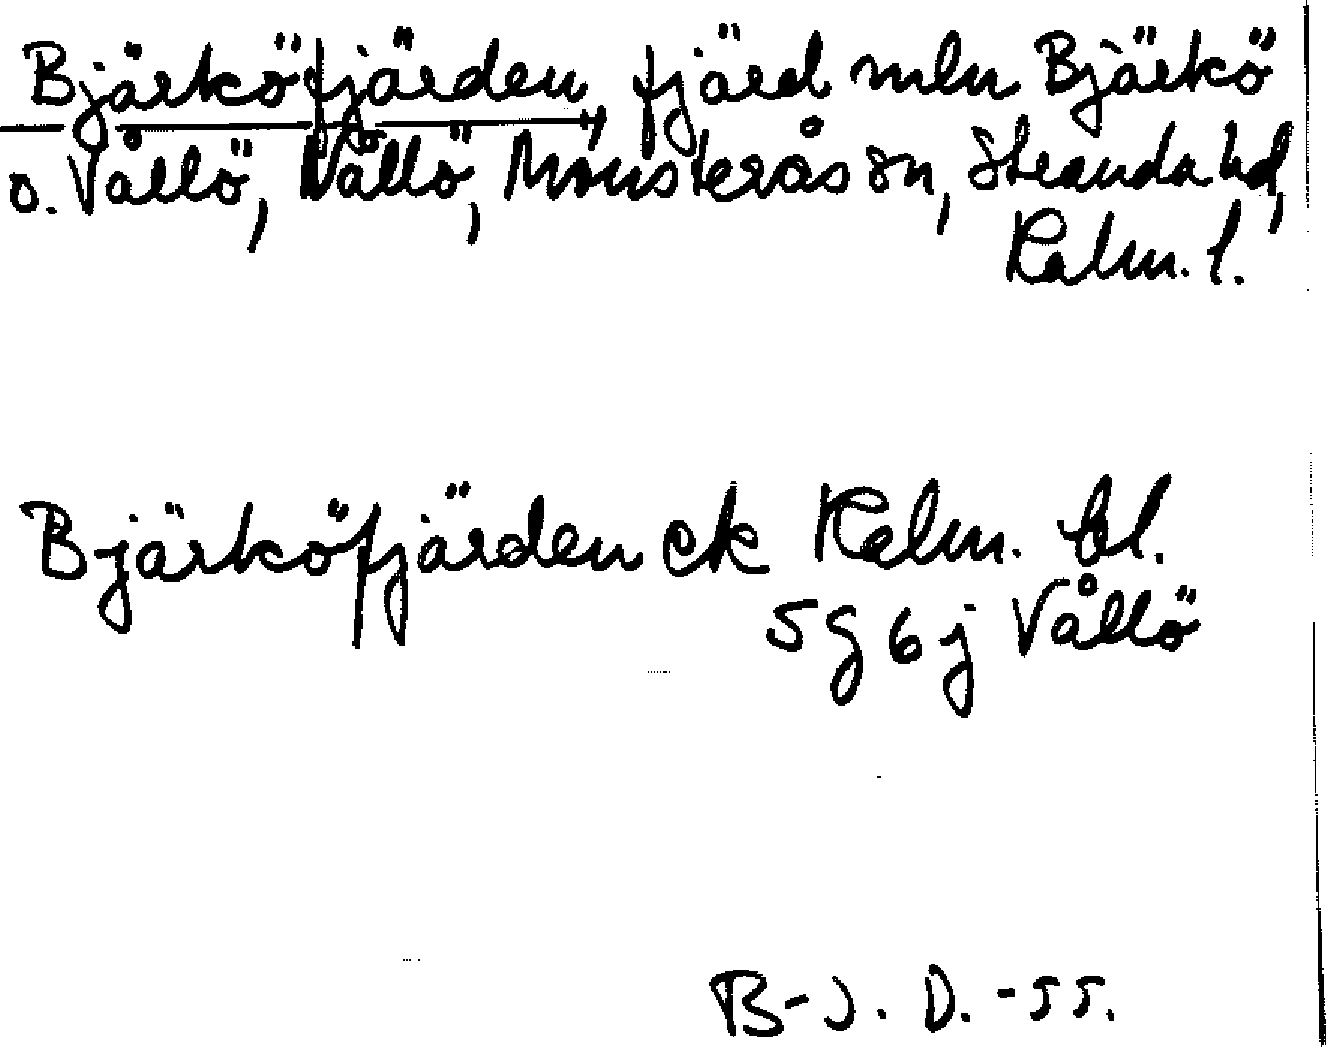 Bjärköfjärden, fjärd mln Bjärkö
o. Vållö, Vållö, Mönsterås sn, Stranda hd,
Kalm. l.
Bjärköfjärden ek Kalm. bl.
5 g 6 j Vållö
B-J. D. -55.